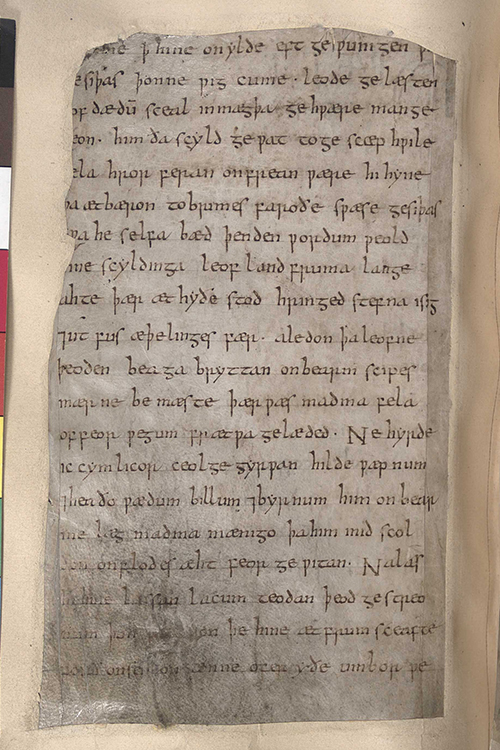 þ hine onylde eft geƿunigen
esiþas þonne ƿig cume · leode gelæsten
ofdædū sceal inmægþa gehƿære man ge
eon · him ða scyld geƿat togescæp hƿile
ela hror feran onfrean ƿære hi hyne
þa ætbæron tobrimes faroðe sƿæse gesiþas
sƿa he selfa bæd þenden ƿordum ƿeold
ine scyldinga leof landfruma lange
ahte þær æt hyðe stod hringed stefna isig
⁊ut fus æþelinges fær · aledon þa leofne
þeoden beaga bryttan onbearm scipes
mærne be mæste þær ƿæs madma fela
offeor ƿegum frætƿa gelæded · Ne hyrde
ic cymlicor ceol gegyrƿan hilde ƿæpnum
⁊heaðo ƿædum billum ⁊byrnum him on bear
me læg madma mænigo þahim mid scol
don onflodes æht feor geƿitan · Nalæs
hi hine læssan lacum teodan þeod gestreo
num þon þe hine æt frum sceafte
onsendon ænne ofer yðe umbor ƿe